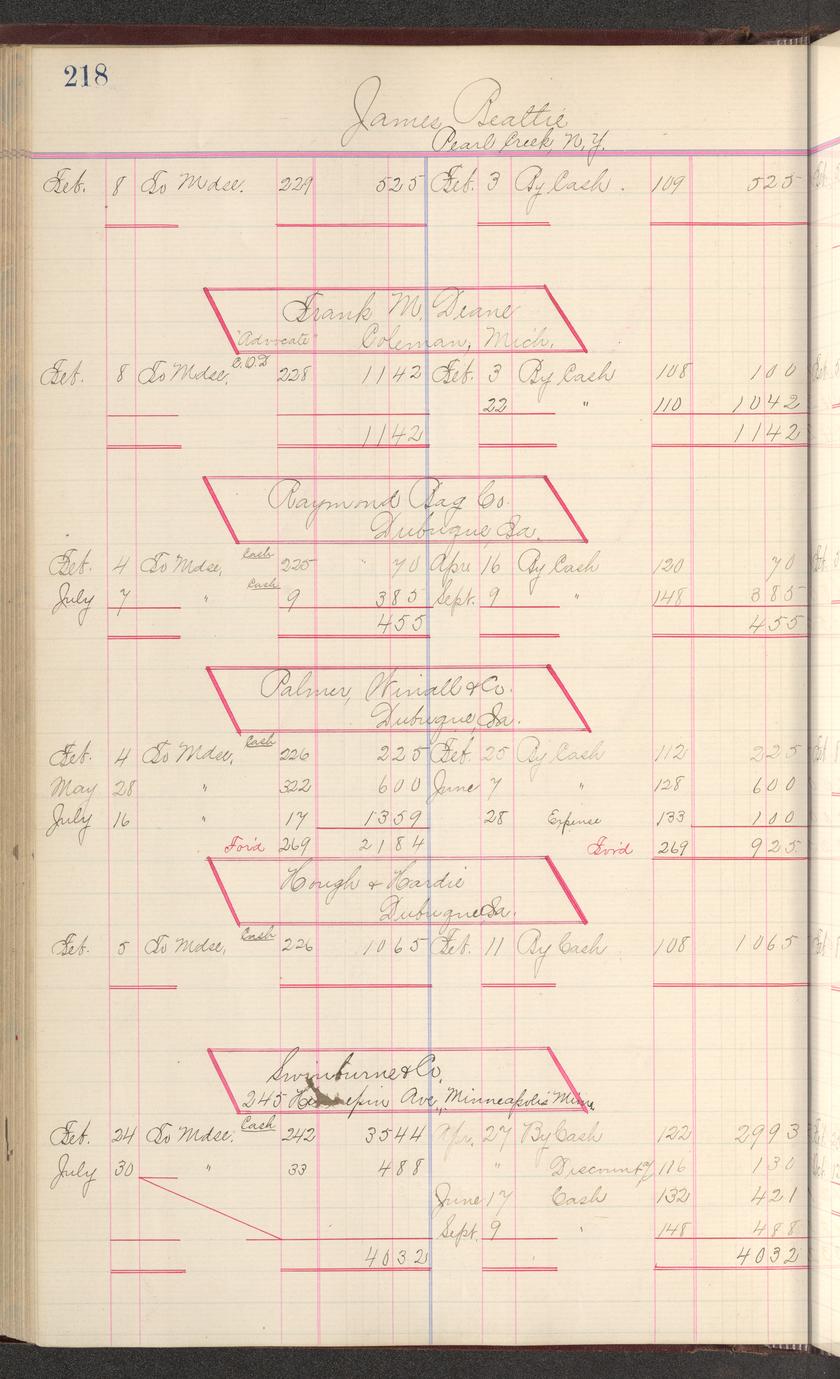 218
James Beattie
Pearl Creek, N.Y.
Feb. 8 To Mdse. 229 525 Feb. 3 By Cash. 109 525
Frank M. Deane
"Advocate" Coleman, Mich.
Feb. 8 To Mdse, C.O.D 228 1142 Feb. 3 By Cash 108 100
22 " 110 1042
1142 1142
Raymond Bag Co.
Dubuque, Ia.
Feb. 4 To Mdse, Cash 225 70 Apr. 16 By Cash 120 70
July 7 " Cash 9 385 Sept. 9 " 148 385
455 455
Palmer, Winall & Co.
Dubuque, Ia.
Feb. 4 To Mdse, Cash 226 225 Feb. 25 By Cash 112 225
May 28 " 322 600 June 7 " 128 600
July 16 " 17 1359 28 Expense 133 100
For'd 269 2184 For'd 269 925
Hough & Hardie
Dubuque, Ia.
Feb. 5 To Mdse, Cash 226 1065 Feb. 11 By Cash 108 1065
Swinburne & Co,
245 Ave, "Minneapolis" Minn
Feb. 24 To Mdse. Cash 242 3544 Apr. 27 By Cash 122 2993
July 30 " 33 488 " Discount 116 130
June 17 Cash 132 421
Sept. 9 " 148 488
4032 4032